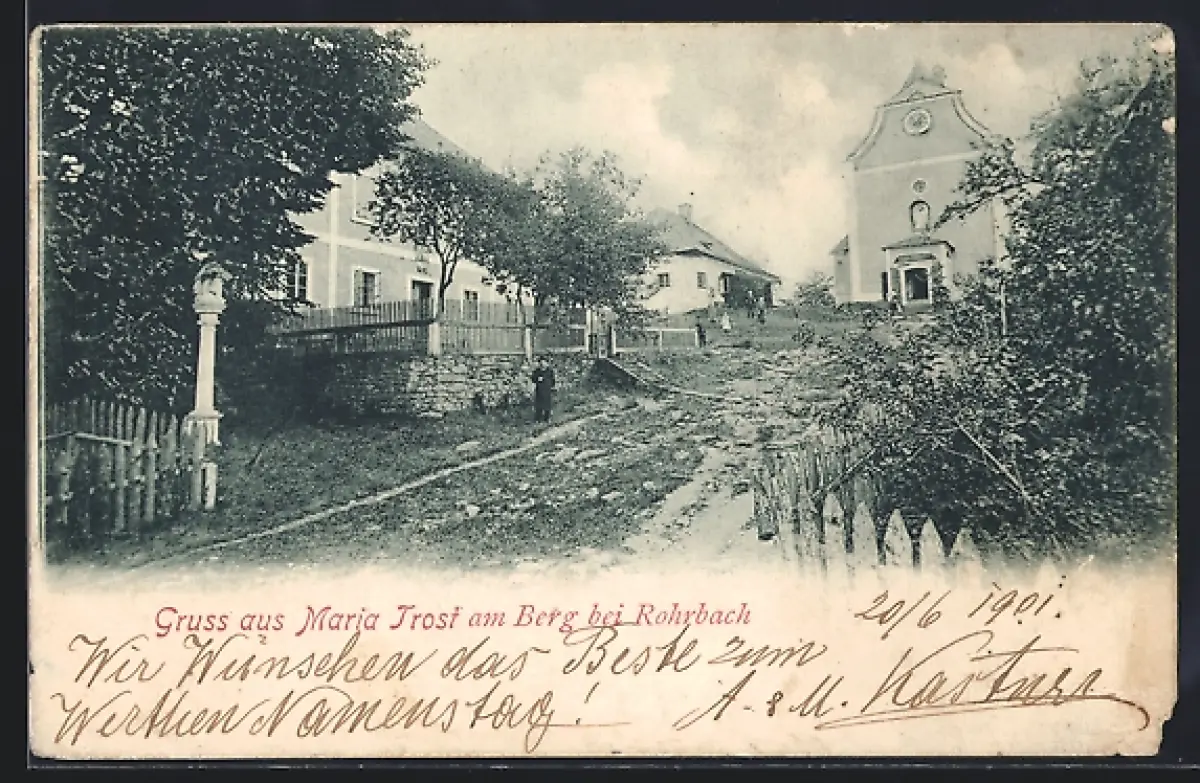 Gruss aus Maria Trost am Berg bei Rohrbach
20/6 1901.
Wir Wünschen das Beste zum
Werthen Namenstag!
A. & M. Kastner